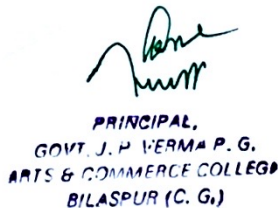 PRINCIPAL,
GOVT. J. P. VERMA P. G.
ARTS & COMMERCE COLLEGE
BILASPUR (C. G.)